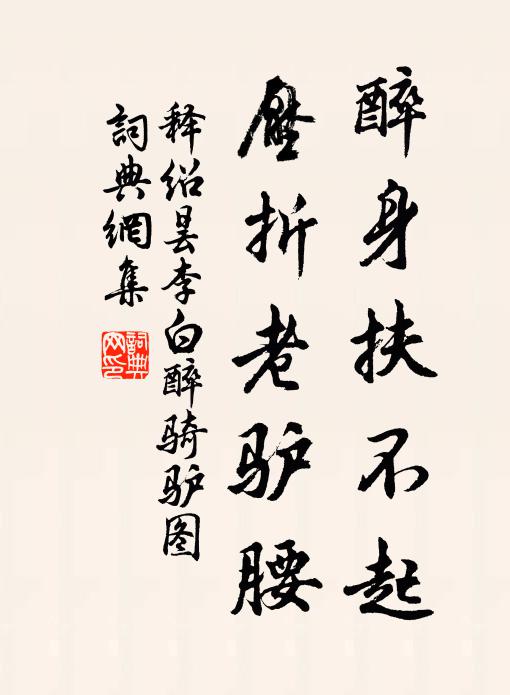 醉身扶不起
壓折老驴腰
释绍昙李白醉骑驴图
詞典網集
詞典网印